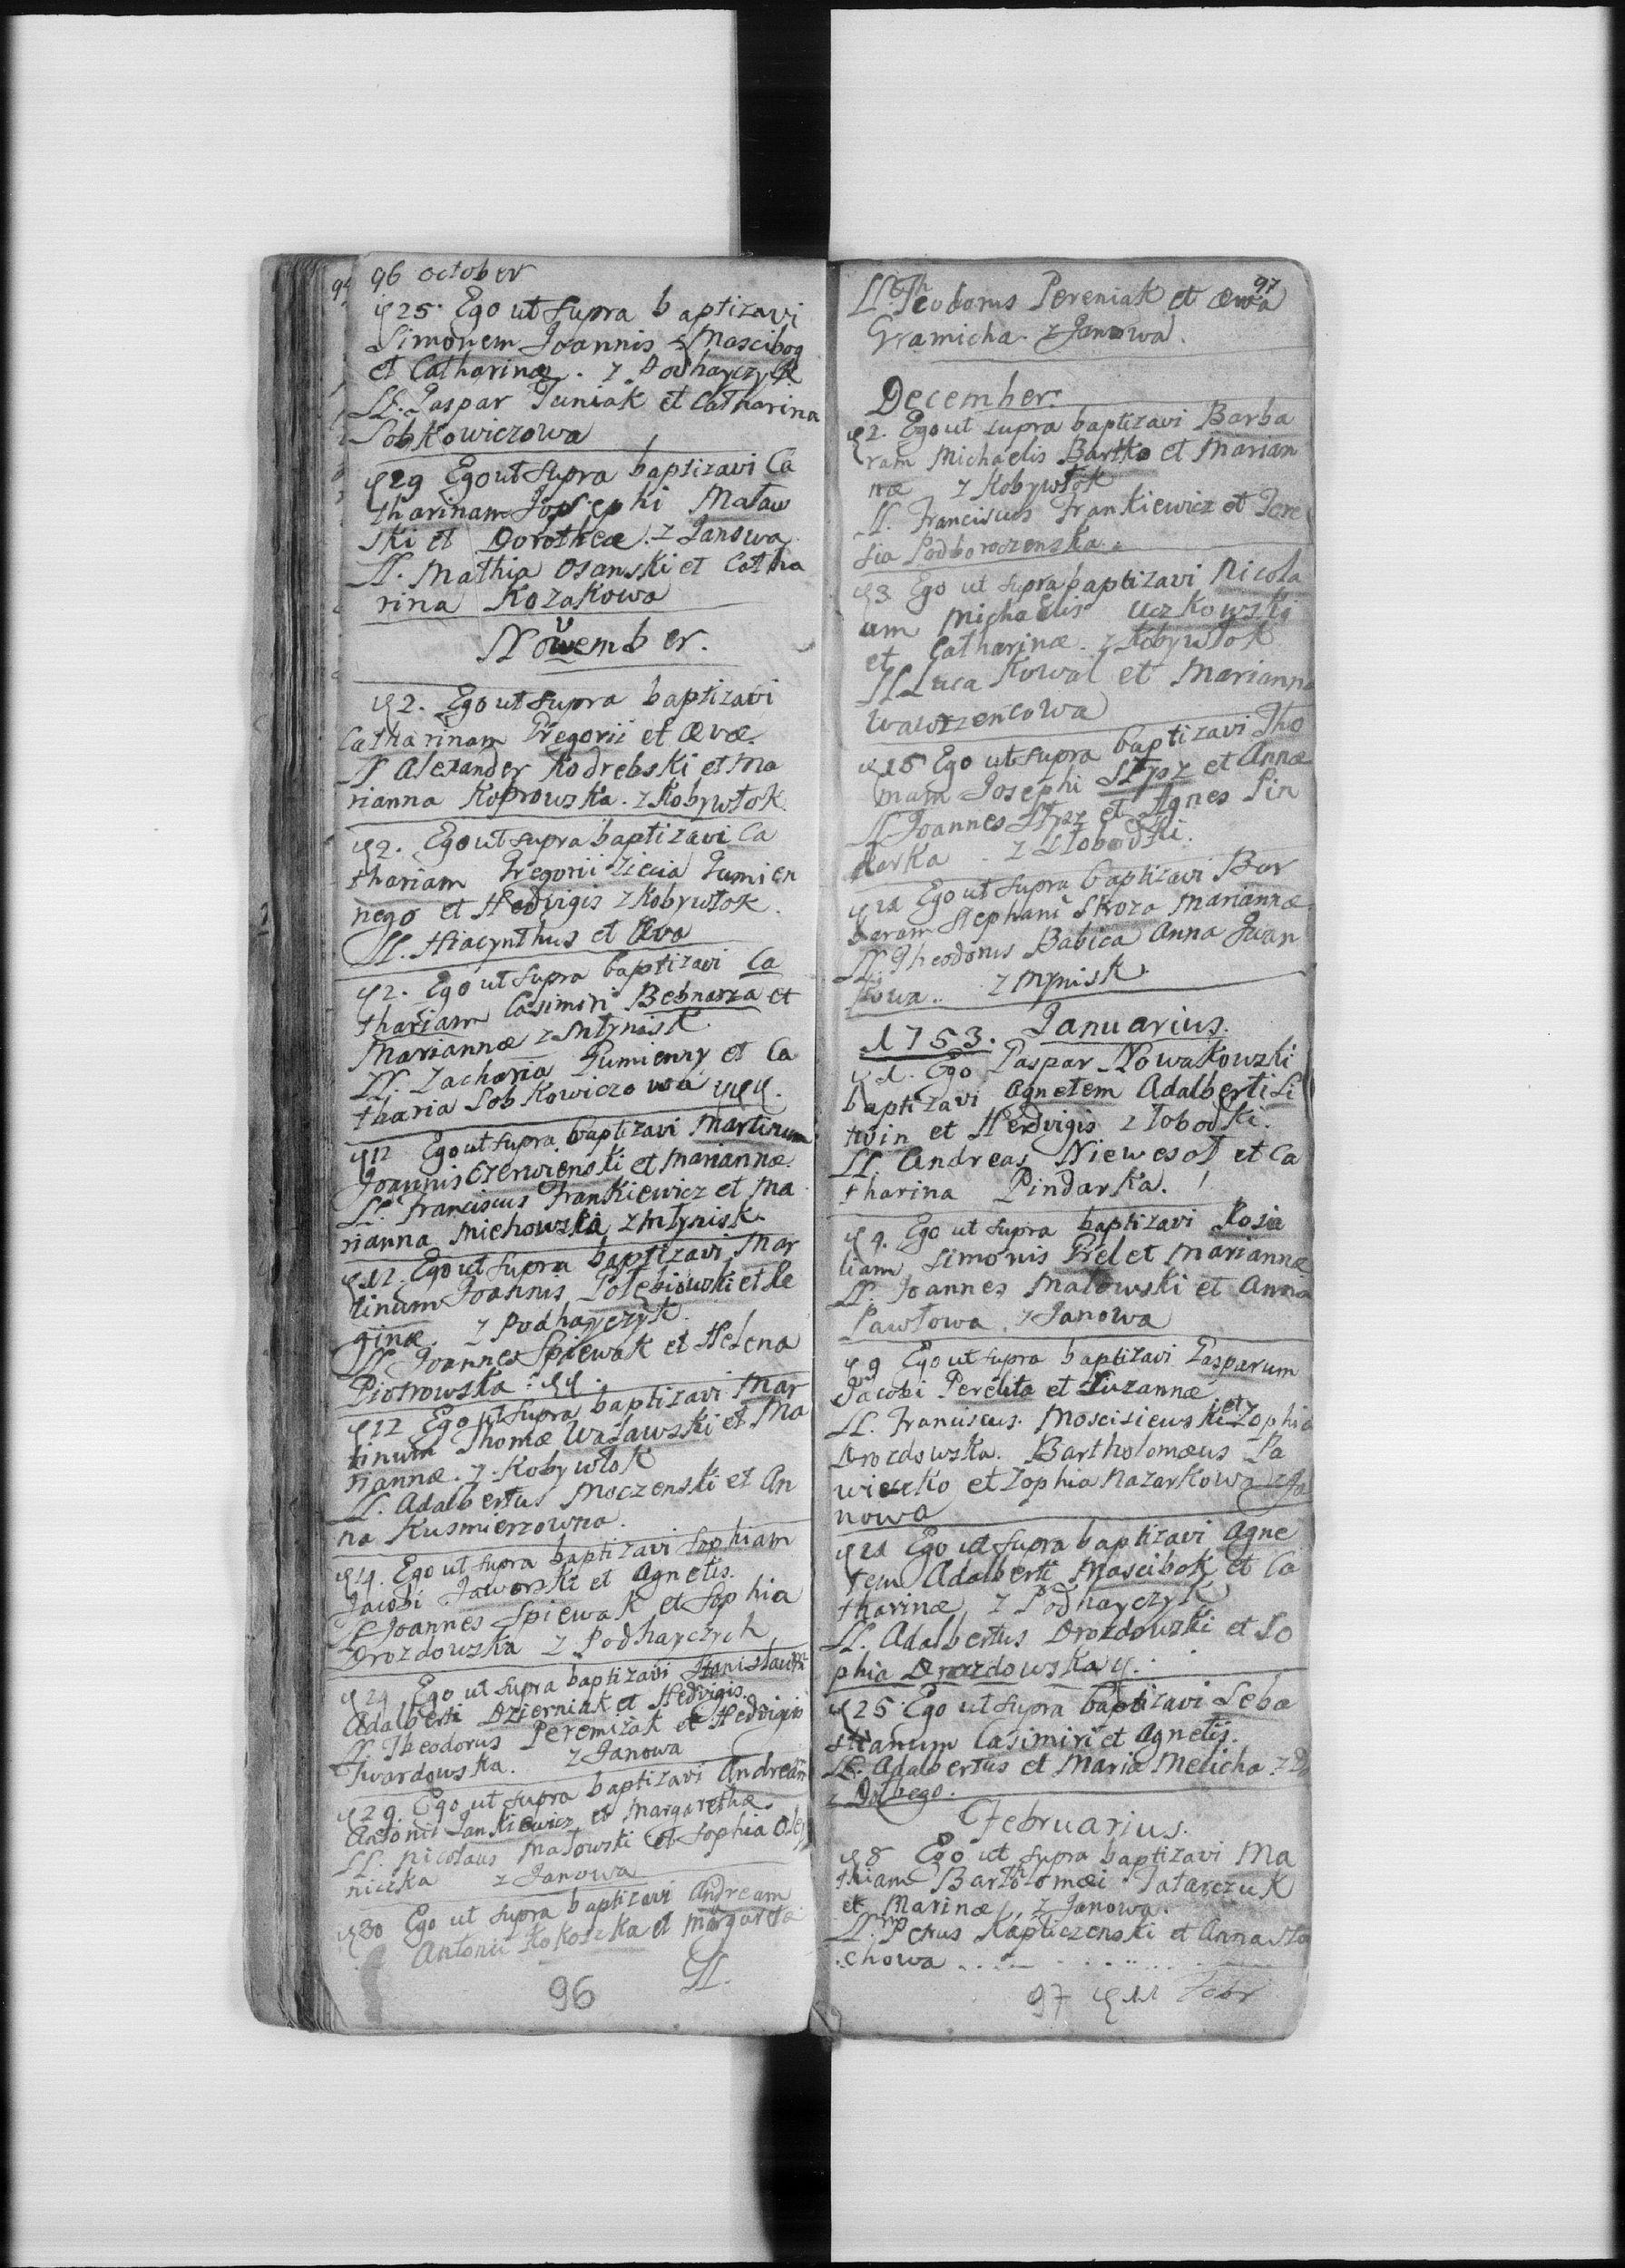 96 October
25. Ego ut supra baptizavi
Simonem Joannis Mascibog
et Catharinæ. z Podhayczyk
LL. Gaspar Guniak et Catharina
Sobkowiczowa
29 Ego ut supra baptizavi Ca
tharinam Josephi Mataw
ski et Dorotheæ. z Janowa
LL. Mathia Osanski et Catha
rina Kozakowa
November.
2. Ego ut supra baptizavi
Catharinam Gregorii et Ævæ.
LL Alexander Kodrebski et Ma
rianna Koprowska. z Kobywłok
2. Ego ut supra baptizavi Ca
thariam Gregorii Ziecia Gumien
nego et Hedvigis z Kobywłok.
LL. Hiacynthus et Æva
2. Ego ut supra baptizavi Ca
thariam Casimiri Bebnarza et
Mariannæ z Młynisk.
LL. Zacharia Gumienny et Ca
tharia Sobkowiczowa
12 Ego ut supra baptizavi Martinum
Joannis Czerwienski et Mariannæ.
LL. Franciscus Frankiewicz et Ma
rianna Michowska z Młynisk.
12. Ego ut supra baptizavi Mar
tinum Joannis Golębiowski et Re
ginæ. z Podhayczyk.
LL Joannes Spiewak et Helena
Piotrowska
12 Ego ut supra baptizavi Mar
tinum Thomæ Watawski et Ma
riannæ. z Kobywłok
LL. Adalbertus Moczenski et An
na Kusmierzowna.
14. Ego ut supra baptizavi Sophiam
Jacobi Jaworski et Agnetis.
LL Joannes Spiewak et Sophia
Drozdowska z Podhayczych
24 Ego ut supra baptizavi Stanisławm
Adalberti Dzierniak et Hedvigis.
LL. Theodorus Peremizak et Hedvigis
Twardowska. z Janowa
29. Ego ut supra baptizavi Andream
Antonii Jankiewicz et Margarethæ.
LL. Nicolaus Matowski et Sophia Oley
niczka z Janowa
30 Ego ut supra baptizavi Andream
Antonii Kokoszka et Margareta
LL.
96
97
LL. Theodorus Pereniak et Æwa
Gramicha. z Janowa.
December.
2. Ego ut supra baptizavi Barba
ram Michaelis Bartko et Marian
næ z Kobywłok
LL. Franciscus Frankiewicz et Tere
sia Podhoroczenska.
3 Ego ut supra baptizavi Nicola
um Michaelis Uczkowski
et Catharinæ. z Kobywłok
LL Luca Kowal et Marianna
Wawrzencowa
15 Ego ut supra baptizavi Tho
mam Josephi Stysz et Annæ
LL Joannes Stysz et Agnes Pin
darka. z Słobodki.
21 Ego ut supra baptizavi Bar
baram Stephani Skoza Mariannæ.
LL. Theodorus Babica Anna Juan
kowa.. z Mynisk.
1753. Januarius.
1. Ego Gaspar Nowakowski
baptizavi Agnetem Adalberti Li
twin et Hedvigis z łobodki.
LL. Andreas Niewesoł et Ca
tharina Pindarka.
4. Ego ut supra baptizavi Rosa
liam Simonis Grel et Mariannæ
LL. Joannes Matowski et Anna
Pawłowa. z Janowa
9 Ego ut supra baptizavi Gasparum
Jacobi Perelita et Zuzannæ.
LL. Franciscus Moscisiewski et Zophia
Drozdowska. Bartholomæus Pa
wiczko et Zophia Nazarkowa z Ja
nowa
21 Ego ut supra baptizavi Agne
tem Adalberti Mascibok et Ca
tharinæ z Podhayczyk
LL. Adalbertus Drozdowski et So
phia Drozdowska
25. Ego ut supra baptizavi Seba
stianum Casimiri et Agnetis.
LL. Adalbertus et Maria Melicha
z Dołhego.
Februarius.
8 Ego ut supra baptizavi Ma
thiam Bartholomæi Tatarczuk
et Marinæ. z Janowa.
LL. Petrus Kapliczenski et Anna Sta
chowa
97 11 Febr